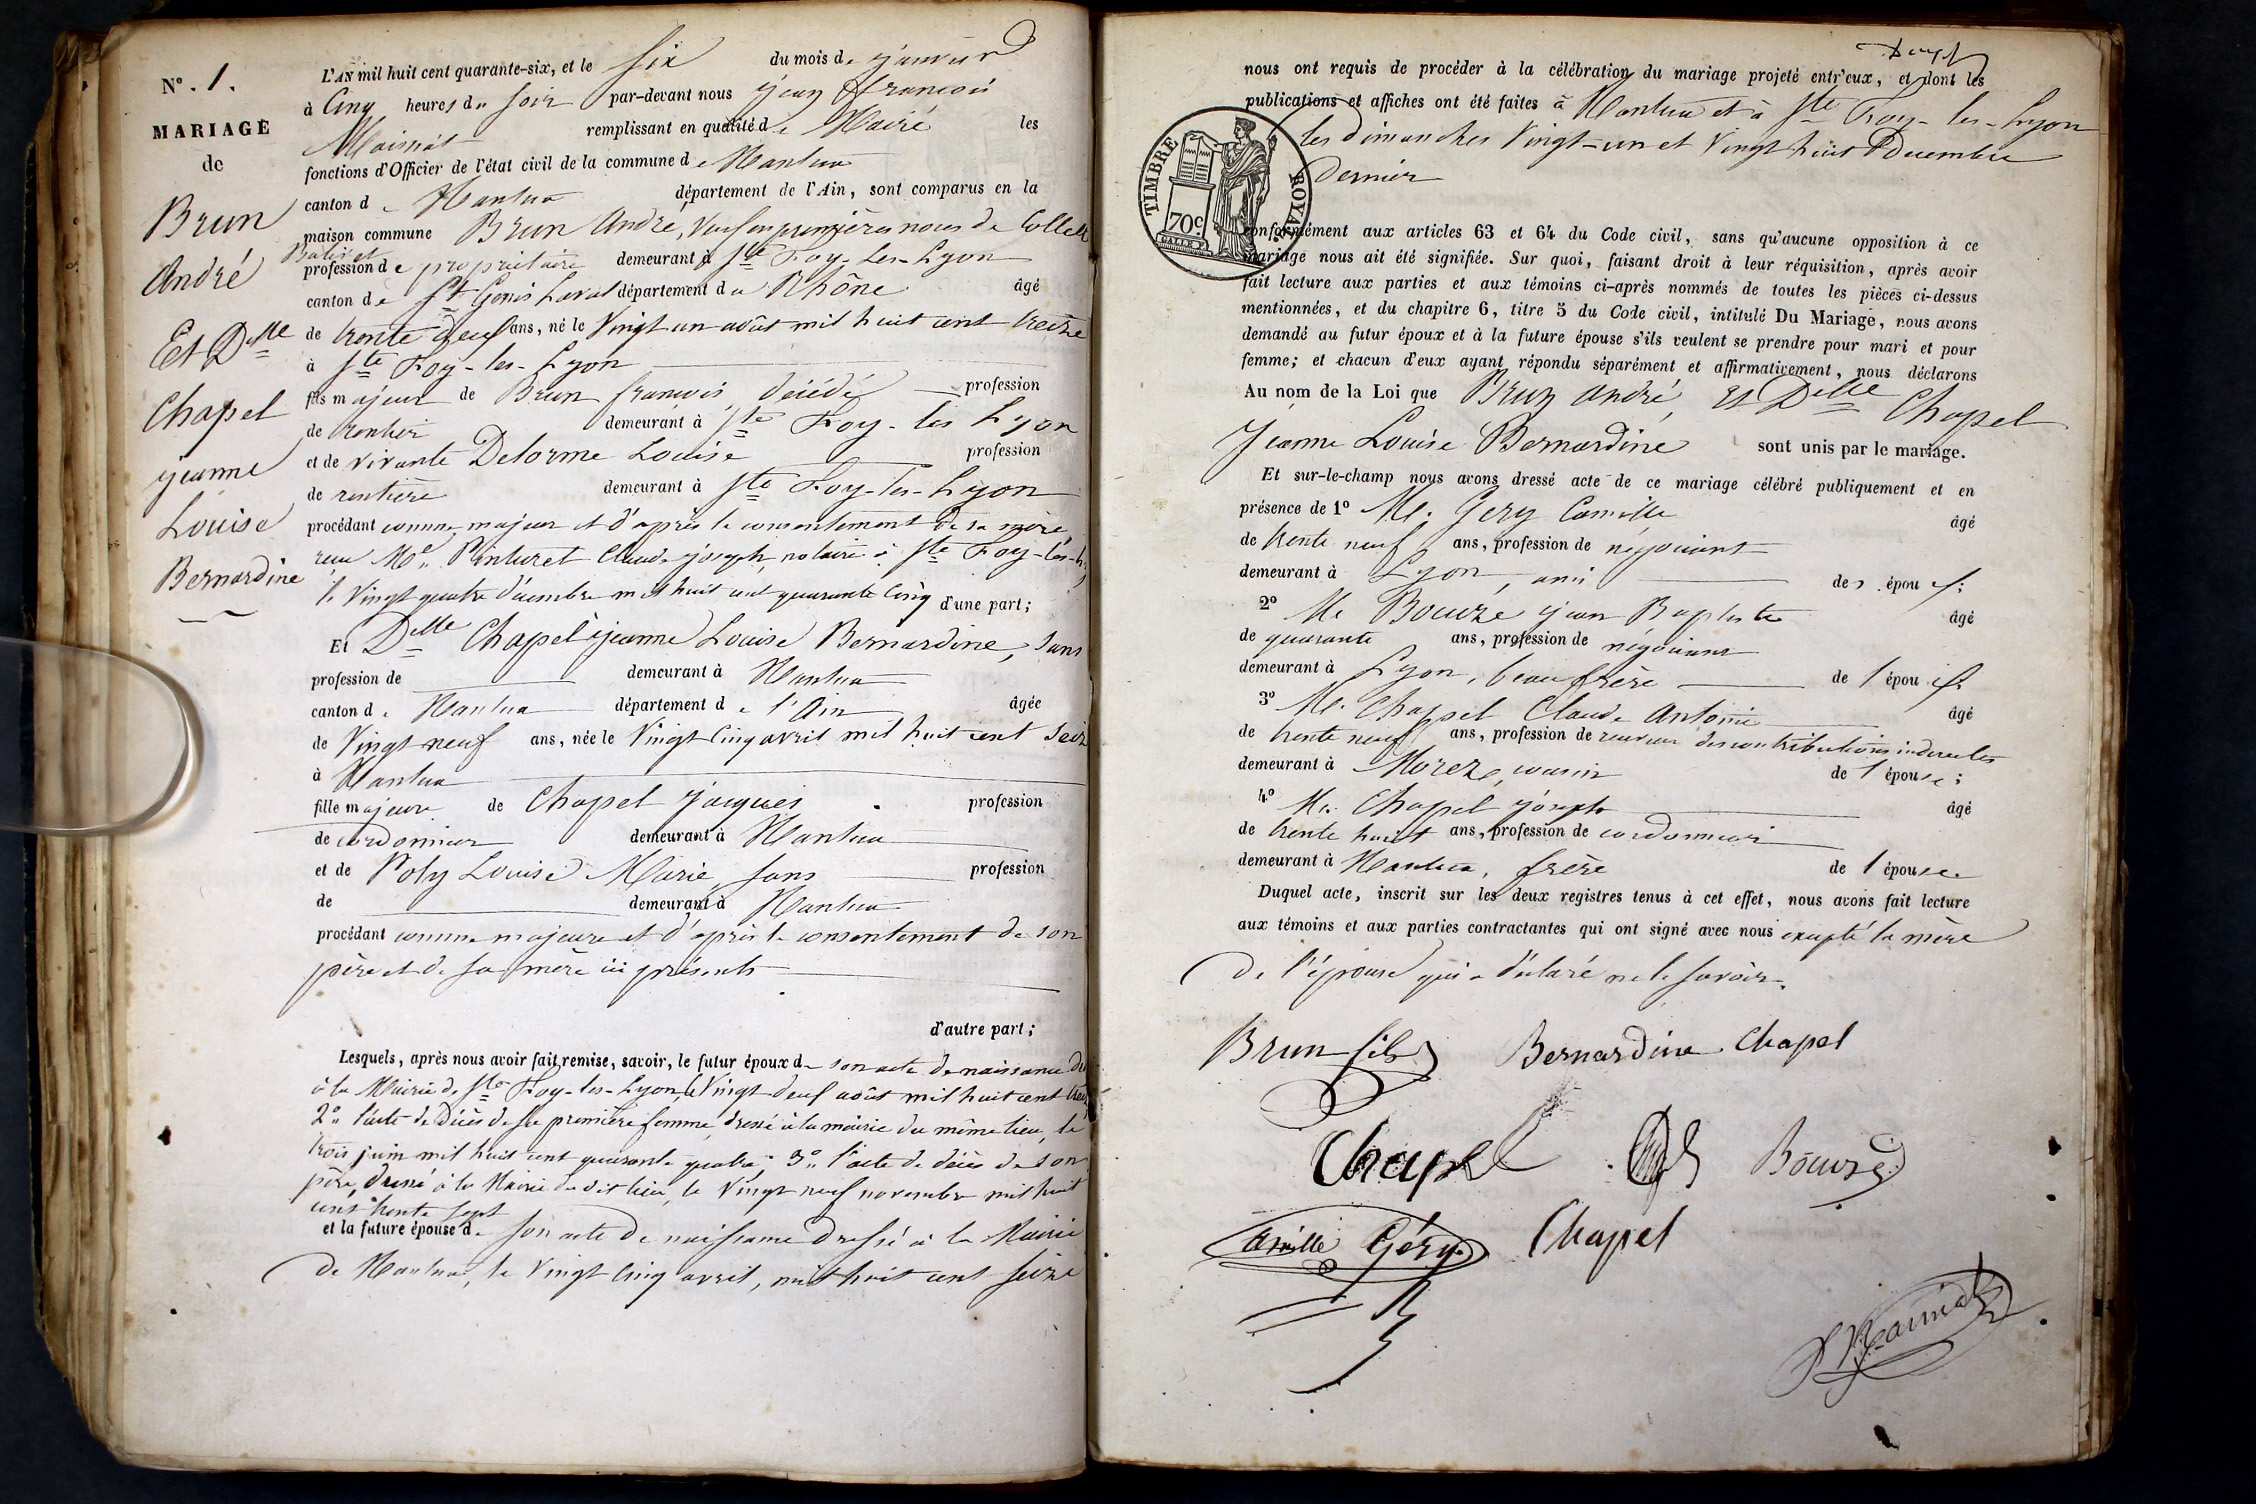 N°. 1.
MARIAGE
de
Brun
André
Et Delle
Chapel
jeanne
Louise
Bernardine
L'AN mil huit cent quarante-six, et le six du mois de janvier
à Cinq heures du soir par-devant nous jean françois
remplissant en qualité de Maire les
fonctions d'Officier de l'état civil de la commune de Nantua
canton de Nantua département de l'Ain, sont comparus en la
maison commune Brun André, Veuf en premières noces de Collet
profession de propriétaire demeurant à Ste Foy-Les-Lyon
canton de St Genis Laval département du Rhône âgé
de trente deux ans, né le Vingt un août mil huit cent treize
à Ste Foy-les-Lyon
fils majeur de Brun françois, décédé profession
de rentier demeurant à Ste Foy-les Lyon
et de vivante Delorme Louise profession
de rentière demeurant à Ste Foy-les-Lyon
procédant comme majeur et d'après le consentement de sa mère
reçu Me Claude joseph, notaire à Ste Foy-lès-L,
le Vingt quatre décembre mil huit cent quarante Cinq d'une part;
Et Delle Chapel jeanne Louise Bernardine, sans
profession de demeurant à Nantua
canton de Nantua département de l'Ain âgée
de Vingt neuf ans, née le Vingt Cinq avril mil huit cent seize
à Nantua
fille majeure de Chapel jacques profession
de cordonnier demeurant à Nantua
et de Poly Louise Marie sans profession
de demeurant à Nantua
procédant comme majeure et d'après le consentement de son
père et de sa mère ici présents
d'autre part;
Lesquels, après nous avoir fait remise, savoir, le futur époux de son acte de naissance
à la Mairie de Ste Foy-les-Lyon, le Vingt deux août mil huit cent treize
2° l'acte de décès de sa première femme dressé à la mairie du même lieu, le
trois juin mil huit cent quarante quatre 3° l'acte de décès de son
père, dressé à la Mairie du dit lieu, le Vingt neuf novembre mil huit
cent trente sept
et la future épouse de son acte de naissance dressé à la Mairie
de Nantua, le Vingt Cinq avril, mil huit cent seize
nous ont requis de procéder à la célébration du mariage projeté entr'eux, et dont les
publications et affiches ont été faites à Nantua et à Ste Foy-les-Lyon
les dimanches Vingt-un et Vingt huit Décembre
Dernier
TIMBRE ROYAL
70c
conformément aux articles 63 et 64 du Code civil, sans qu'aucune opposition à ce
mariage nous ait été signifiée. Sur quoi, faisant droit à leur réquisition, après avoir
fait lecture aux parties et aux témoins ci-après nommés de toutes les pièces ci-dessus
mentionnées, et du chapitre 6, titre 5 du Code civil, intitulé Du Mariage, nous avons
demandé au futur époux et à la future épouse s'ils veulent se prendre pour mari et pour
femme; et chacun d'eux ayant répondu séparément et affirmativement, nous déclarons
Au nom de la Loi que Brun André et Delle Chapel
Jeanne Louise Bernardine sont unis par le mariage.
Et sur-le-champ nous avons dressé acte de ce mariage célébré publiquement et en
présence de 1° Mr. Gery Camille âgé
de trente neuf ans, profession de négociant
demeurant à Lyon, ami des époux;
2° Mr Bouvre jean Baptiste âgé
de quarante ans, profession de négociant
demeurant à Lyon, beau frère de l'époux;
3° Mr. Chapel Claude Antoine âgé
de trente neuf ans, profession de receveur des contributions indirectes
demeurant à Morez, cousin de l'épouse;
4° Mr. Chapel joseph âgé
de trente huit ans, profession de cordonnier
demeurant à Nantua, frère de l'épouse.
Duquel acte, inscrit sur les deux registres tenus à cet effet, nous avons fait lecture
aux témoins et aux parties contractantes qui ont signé avec nous excepté la mère
de l'épouse qui a déclaré ne le savoir.
Brun fils Bernardine Chapel
Chapel Bouvre
Camille Géry Chapel